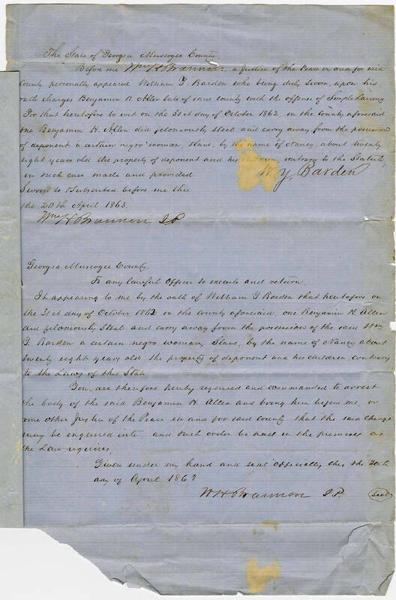 The State of Georgia Muscogee County
Before me Wm H Brannon a Justice of the Peace in and for said
County personally appeared William Y Barden who being duly sworn, upon his
oath charges Benjamin H Allen late of said county with the offence of Simple Larceny
For that heretofore to wit on the 31st day of October 1862, in the County aforesaid
one Benjamin H. Allen did feloniously steal and carry away from the possession
of deponent a certain negro woman, slave, by the name of Nancy, about twenty
eight years old the property of deponent and his contrary to the Statute
in such case made and provided Wm Y. Barden
Sworn to & subscribed before me this
the 20th April 1863.
Wm H Brannon J.P.
Georgia Muscogee County
To any lawful Officer to execute and return.
It appearing to me by the oath of William Y Barden that heretofore on
the 31st day of October 1862 in the county aforesaid, one Benjamin H. Allen
did feloniously steal and carry away from the possession of the said Wm
Y. Barden a certain negro woman, slave, by the name of Nancy about
twenty eight years old the property of deponent and his children contrary
to the Laws of the State
You are therefore hereby required and commanded to arrest
the body of the said Benjamin H. Allen and bring him before me, or
some other Justice of the Peace in and for said county that the said charge
may be enquired into and such order be had in the premises as
the Law requires.
Given under my hand and seal officially this the 20th
day of April 1863
W H Brannon J.P. Seal